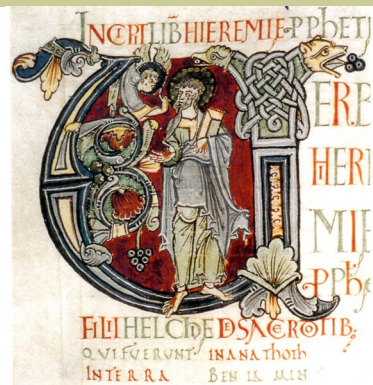 INCIPT LIB HIEREMIE PPHET
V
ER.B
HIER
MIE
PPhE
FILII HELCHIE DE SACEROTIB.
QUI FUERUNT IN ANAThOTh
IN TERRA BEN IA MIN